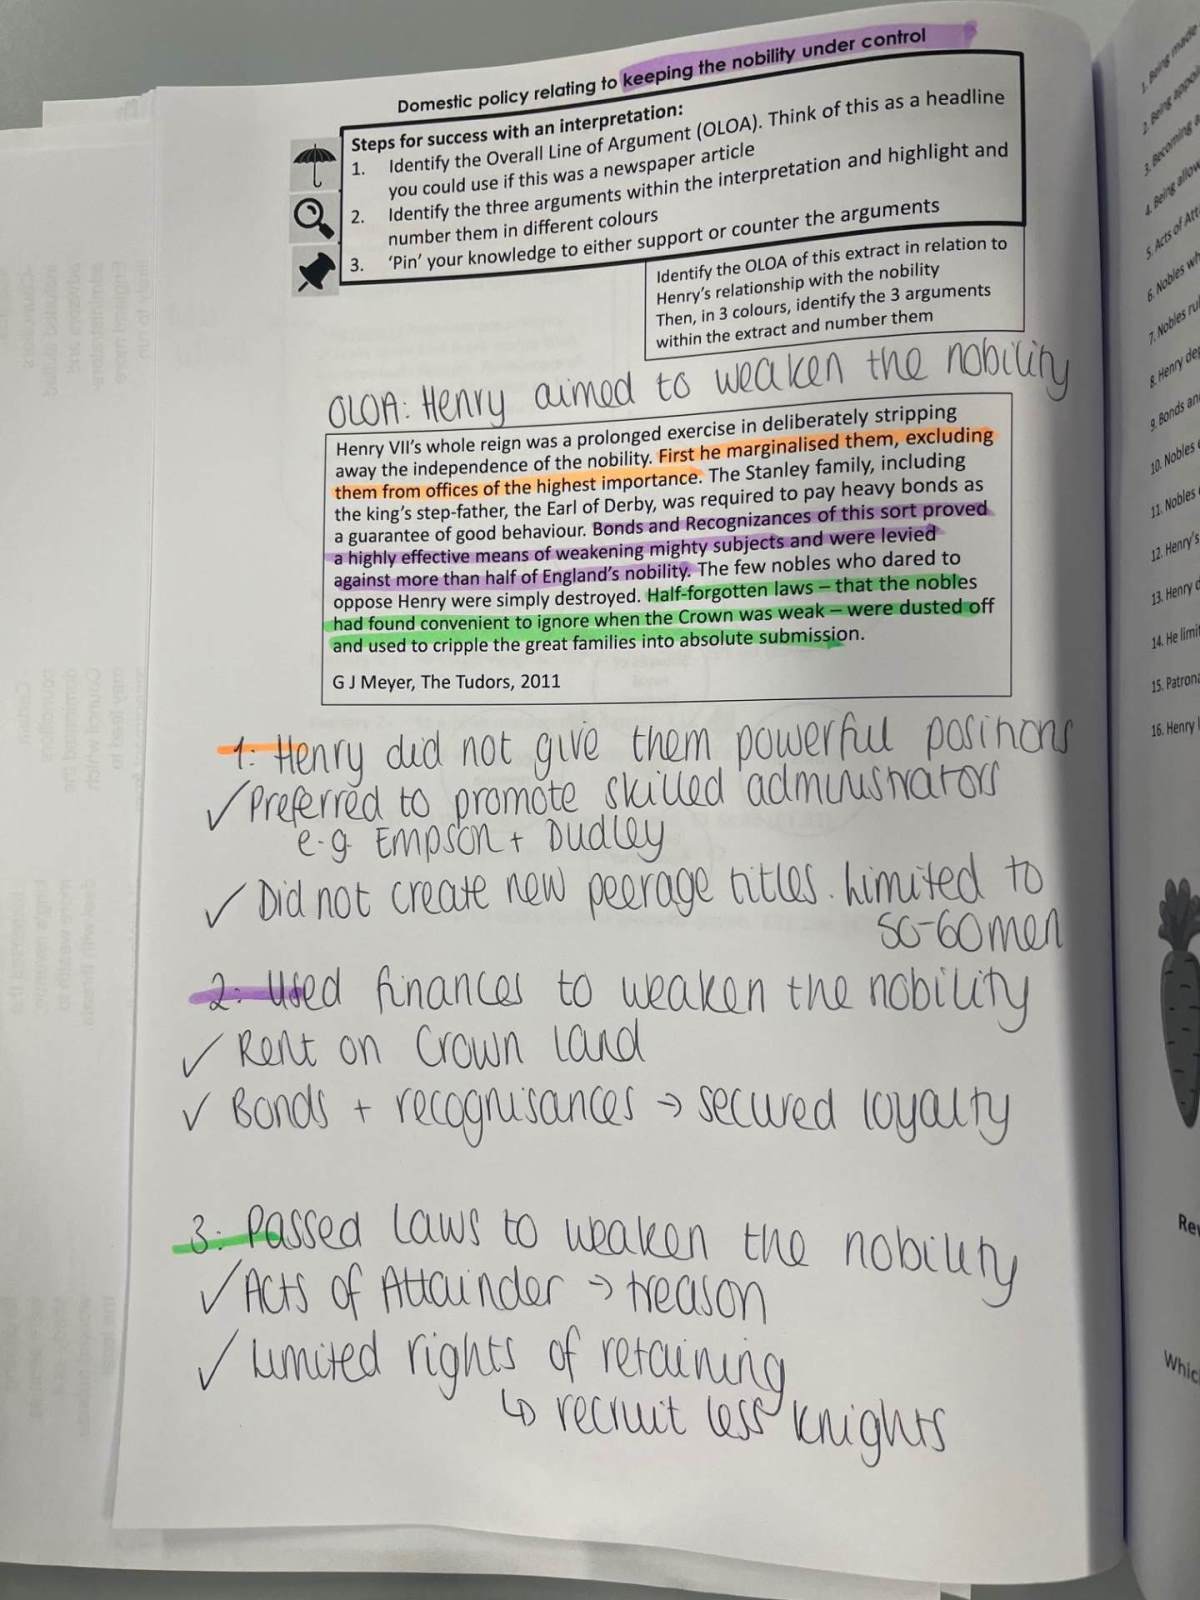 Domestic policy relating to keeping the nobility under control
Steps for success with an interpretation:
1. Identify the Overall Line of Argument (OLOA). Think of this as a headline
you could use if this was a newspaper article
2. Identify the three arguments within the interpretation and highlight and
number them in different colours
3. 'Pin' your knowledge to either support or counter the arguments
Identify the OLOA of this extract in relation to
Henry's relationship with the nobility
Then, in 3 colours, identify the 3 arguments
within the extract and number them
OLOA: Henry aimed to weaken the nobility
Henry VII's whole reign was a prolonged exercise in deliberately stripping
away the independence of the nobility. First he marginalised them, excluding
them from offices of the highest importance. The Stanley family, including
the king's step-father, the Earl of Derby, was required to pay heavy bonds as
a guarantee of good behaviour. Bonds and Recognizances of this sort proved
a highly effective means of weakening mighty subjects and were levied
against more than half of England's nobility. The few nobles who dared to
oppose Henry were simply destroyed. Half-forgotten laws – that the nobles
had found convenient to ignore when the Crown was weak – were dusted off
and used to cripple the great families into absolute submission.
G J Meyer, The Tudors, 2011
1: Henry did not give them powerful positions
✓ Preferred to promote skilled administrators
e.g. Empson + Dudley
✓ Did not create new peerage titles. Limited to
50-60 men
2: Used finances to weaken the nobility
✓ Rent on Crown land
✓ Bonds + recognisances → secured loyalty
3: Passed laws to weaken the nobility
✓ Acts of Attainder → treason
✓ Limited rights of retaining
↳ recruit less knights
1. Being made
2. Being
3. Becoming
4. Being
5. Acts of
6. Nobles
7. Nobles
8. Henry
9. Bonds
10. Nobles
11. Nobles
12. Henry's
13. Henry
14. He
15.
16. Henry